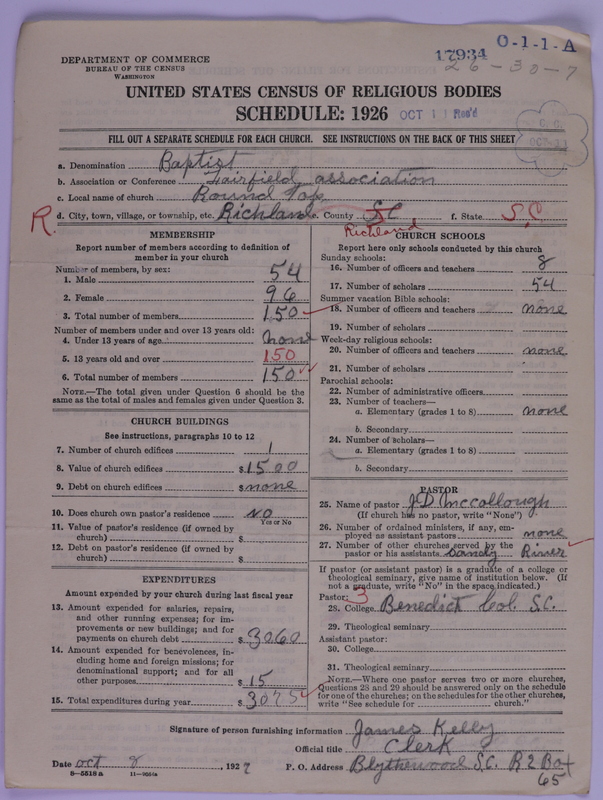 17934 O-1-1-A
26-30-7
DEPARTMENT OF COMMERCE
BUREAU OF THE CENSUS
WASHINGTON
UNITED STATES CENSUS OF RELIGIOUS BODIES
SCHEDULE: 1926 OCT 11 Rec'd
FILL OUT A SEPARATE SCHEDULE FOR EACH CHURCH. SEE INSTRUCTIONS ON THE BACK OF THIS SHEET
a. Denomination Baptist
b. Association or Conference Fairfield association
c. Local name of church Round Top
R. d. City, town, village, or township, etc. Richland e. County SC f. State S.C
Richland
MEMBERSHIP
Report number of members according to definition of
member in your church
Number of members, by sex:
1. Male 54
2. Female 96
3. Total number of members 150
Number of members under and over 13 years old:
4. Under 13 years of age none
5. 13 years old and over 150
6. Total number of members 150
NOTE.—The total given under Question 6 should be the
same as the total of males and females given under Question 3.
CHURCH BUILDINGS
See instructions, paragraphs 10 to 12
7. Number of church edifices 1
8. Value of church edifices $1500
9. Debt on church edifices $none
10. Does church own pastor's residence no
Yes or No
11. Value of pastor's residence (if owned by
church) $
12. Debt on pastor's residence (if owned by
church) $
EXPENDITURES
Amount expended by your church during last fiscal year
13. Amount expended for salaries, repairs,
and other running expenses; for im-
provements or new buildings; and for
payments on church debt $3060
14. Amount expended for benevolences, in-
cluding home and foreign missions; for
denominational support; and for all
other purposes $15
15. Total expenditures during year $3075
CHURCH SCHOOLS
Report here only schools conducted by this church
Sunday schools:
16. Number of officers and teachers 8
17. Number of scholars 54
Summer vacation Bible schools:
18. Number of officers and teachers none
19. Number of scholars
Week-day religious schools:
20. Number of officers and teachers none
21. Number of scholars
Parochial schools:
22. Number of administrative officers
23. Number of teachers—
a. Elementary (grades 1 to 8) none
b. Secondary
24. Number of scholars—
a. Elementary (grades 1 to 8)
b. Secondary
PASTOR
25. Name of pastor J.D. McCollough
(If church has no pastor, write "None")
26. Number of ordained ministers, if any, em-
ployed as assistant pastors none
27. Number of other churches served by the
pastor or his assistants Sandy River
If pastor (or assistant pastor) is a graduate of a college or
theological seminary, give name of institution below. (If
not a graduate, write "No" in the space indicated.)
Pastor: 3
28. College Benedict Col. S.C.
29. Theological seminary
Assistant pastor:
30. College
31. Theological seminary
NOTE.—Where one pastor serves two or more churches,
Questions 28 and 29 should be answered only on the schedule
for one of the churches; on the schedules for the other churches,
write "See schedule for church."
Signature of person furnishing information James Kelly
Official title Clerk
Date oct 8, 1927 P. O. Address Blythewood S.C. R 2 Box
65
8—5518a